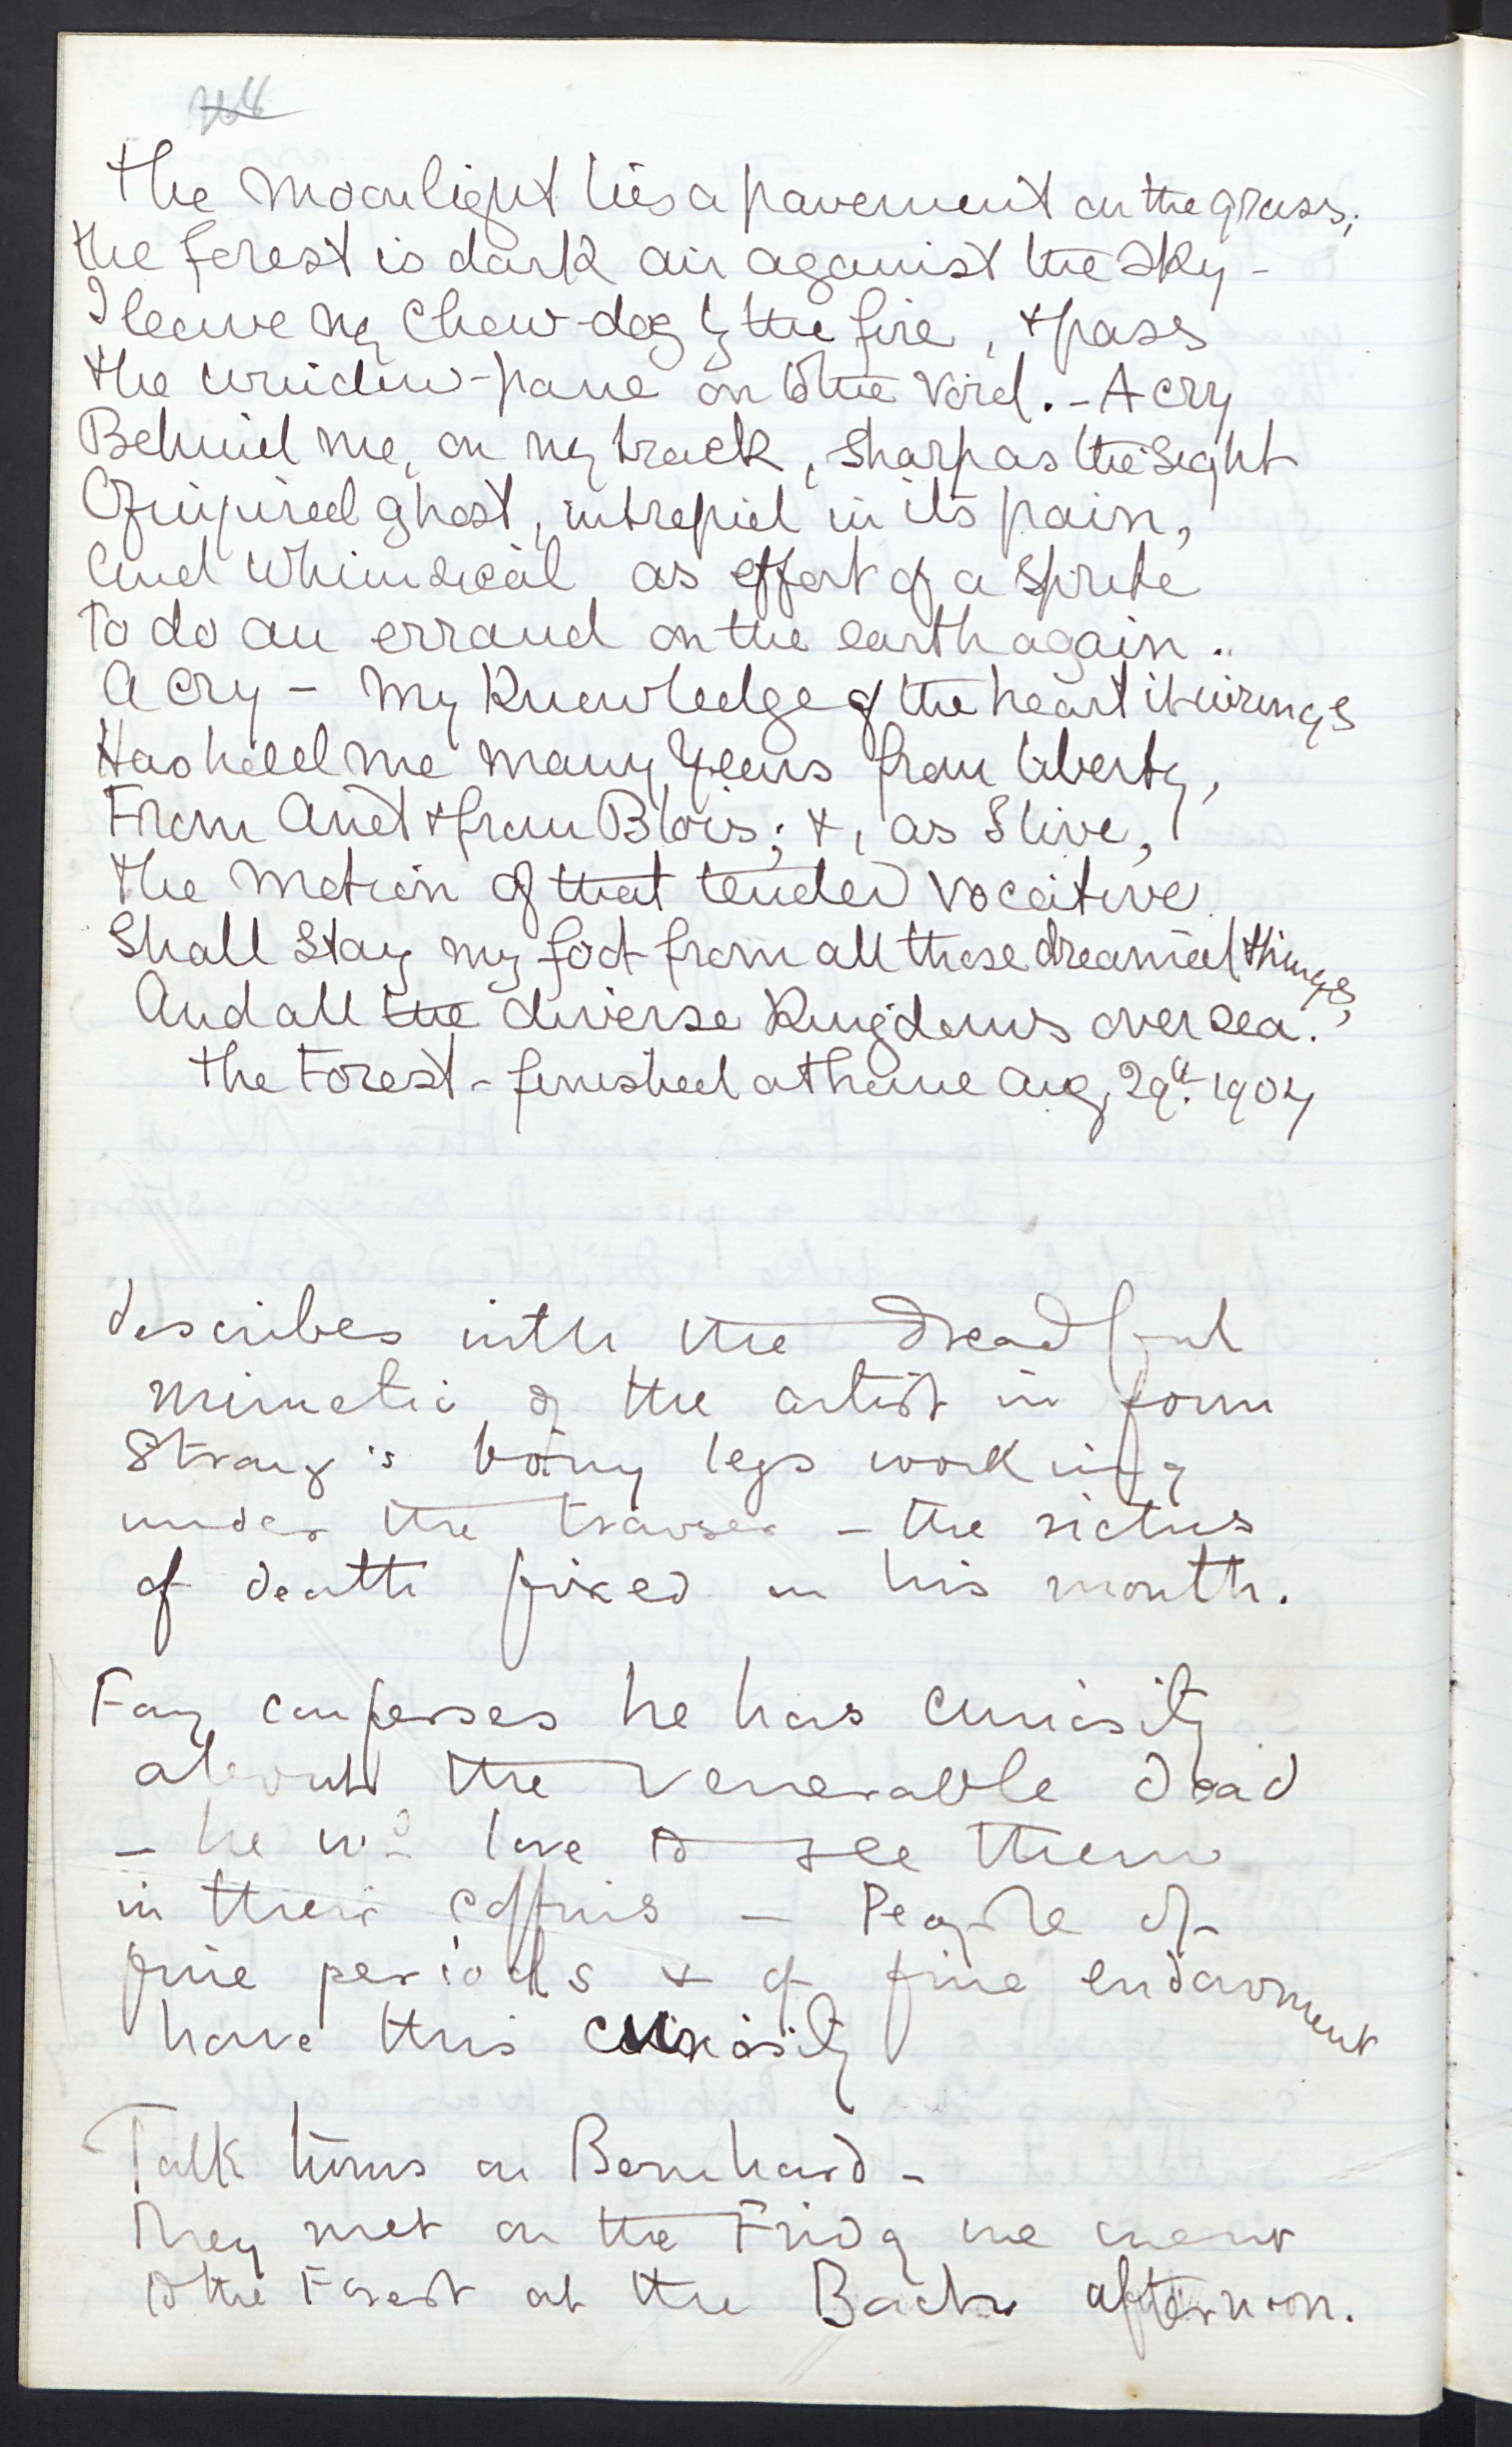 The Moonlight lies a pavement on the grass;
the forest is dark air against the sky –
I leave my Chow-dog by the fire, & pass
the window-pane on to the void. – A cry
Behind me, on my track, sharp as the sight
Of injured ghost, intrepid in its pain,
And Whimsical as effort of a Sprite
To do an errand on the earth again..
A cry – my Knowledge of the heart it wrings
Has held me many Years from liberty,
From Anet & from Blois; &, as I live,
The Motion of that tender vocative
Shall stay my foot from all those dreamed things,
And all the diverse Kingdoms over sea.
The Forest – finished at home Aug. 29th 1904
describes with the dreadful
mimetic of the artist in form
Strang's bony legs working
under the trouser – the rictus
of death fixed on his mouth.
Fay confesses he has curiosity
about the venerable dead
– he wd love to see them
in their coffins – People of
fine periods & of fine endowment
have this curiosity
Talk turns on Bernhard –
They met on the Friday we went
to the Forest at the Bachs afternoon.